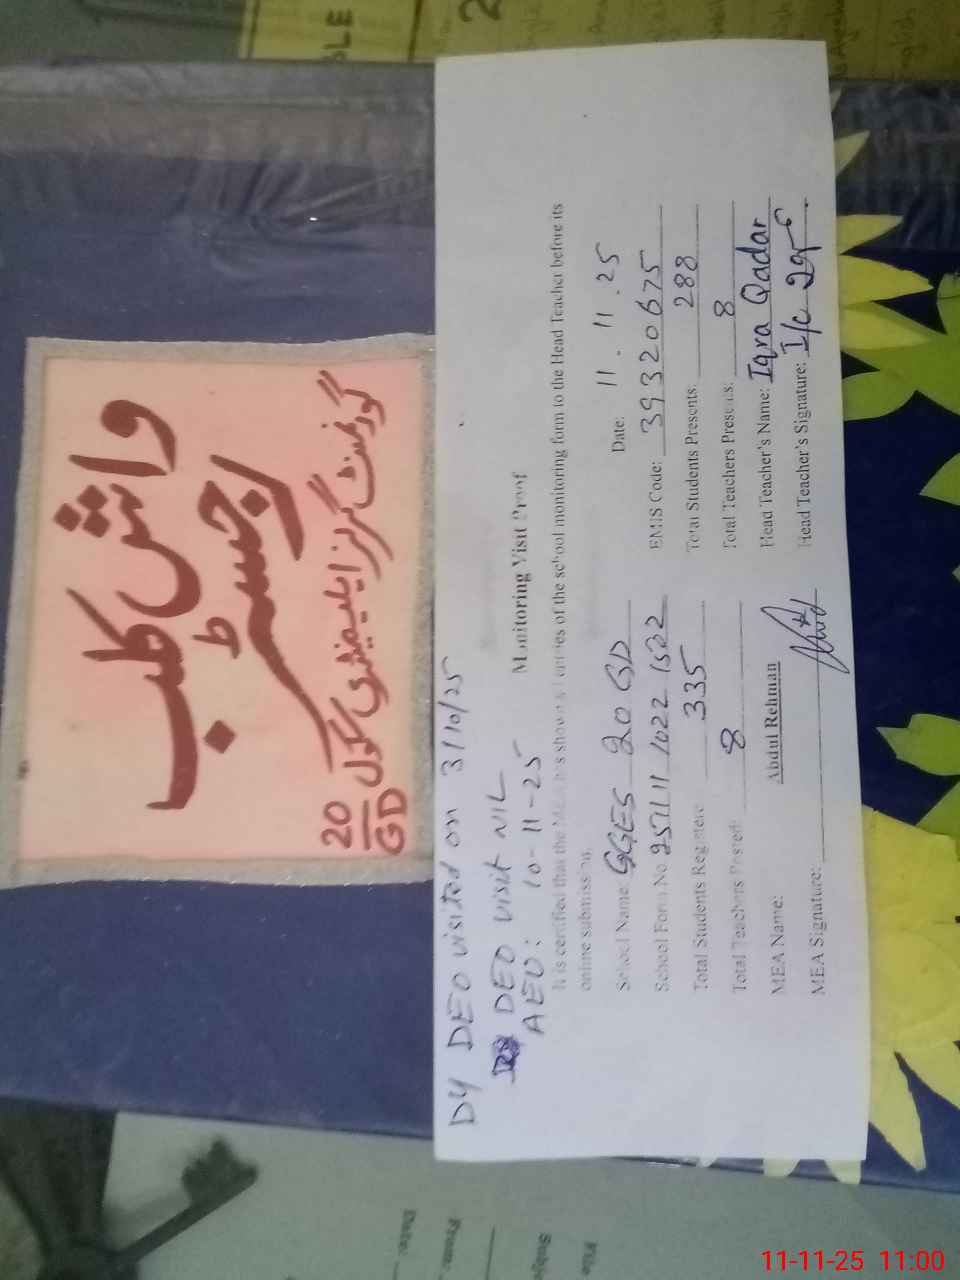 واش کلب
رجسٹر
گورنمنٹ گرلز ایلیمنٹری سکول 20/GD
DY DEO visited on 3/10/25
DEO visit NIL
AEO: 10-11-25
Monitoring Visit Proof
It is certified that the MEA has shown all entries of the school monitoring form to the Head Teacher before its
online submission.
Date: 11.11.25
School Name: GGES 20 GD EMIS Code: 39320675
School Form No Total Students Presents: 288
Total Students Registere 335 Total Teachers Presents: 8
Total Teachers Posted: 8 Head Teacher's Name: Iqra Qadar
MEA Name: Abdul Rehman Head Teacher's Signature: I/c
MEA Signature:
File
Subje
From:
Date:
11-11-25 11:00